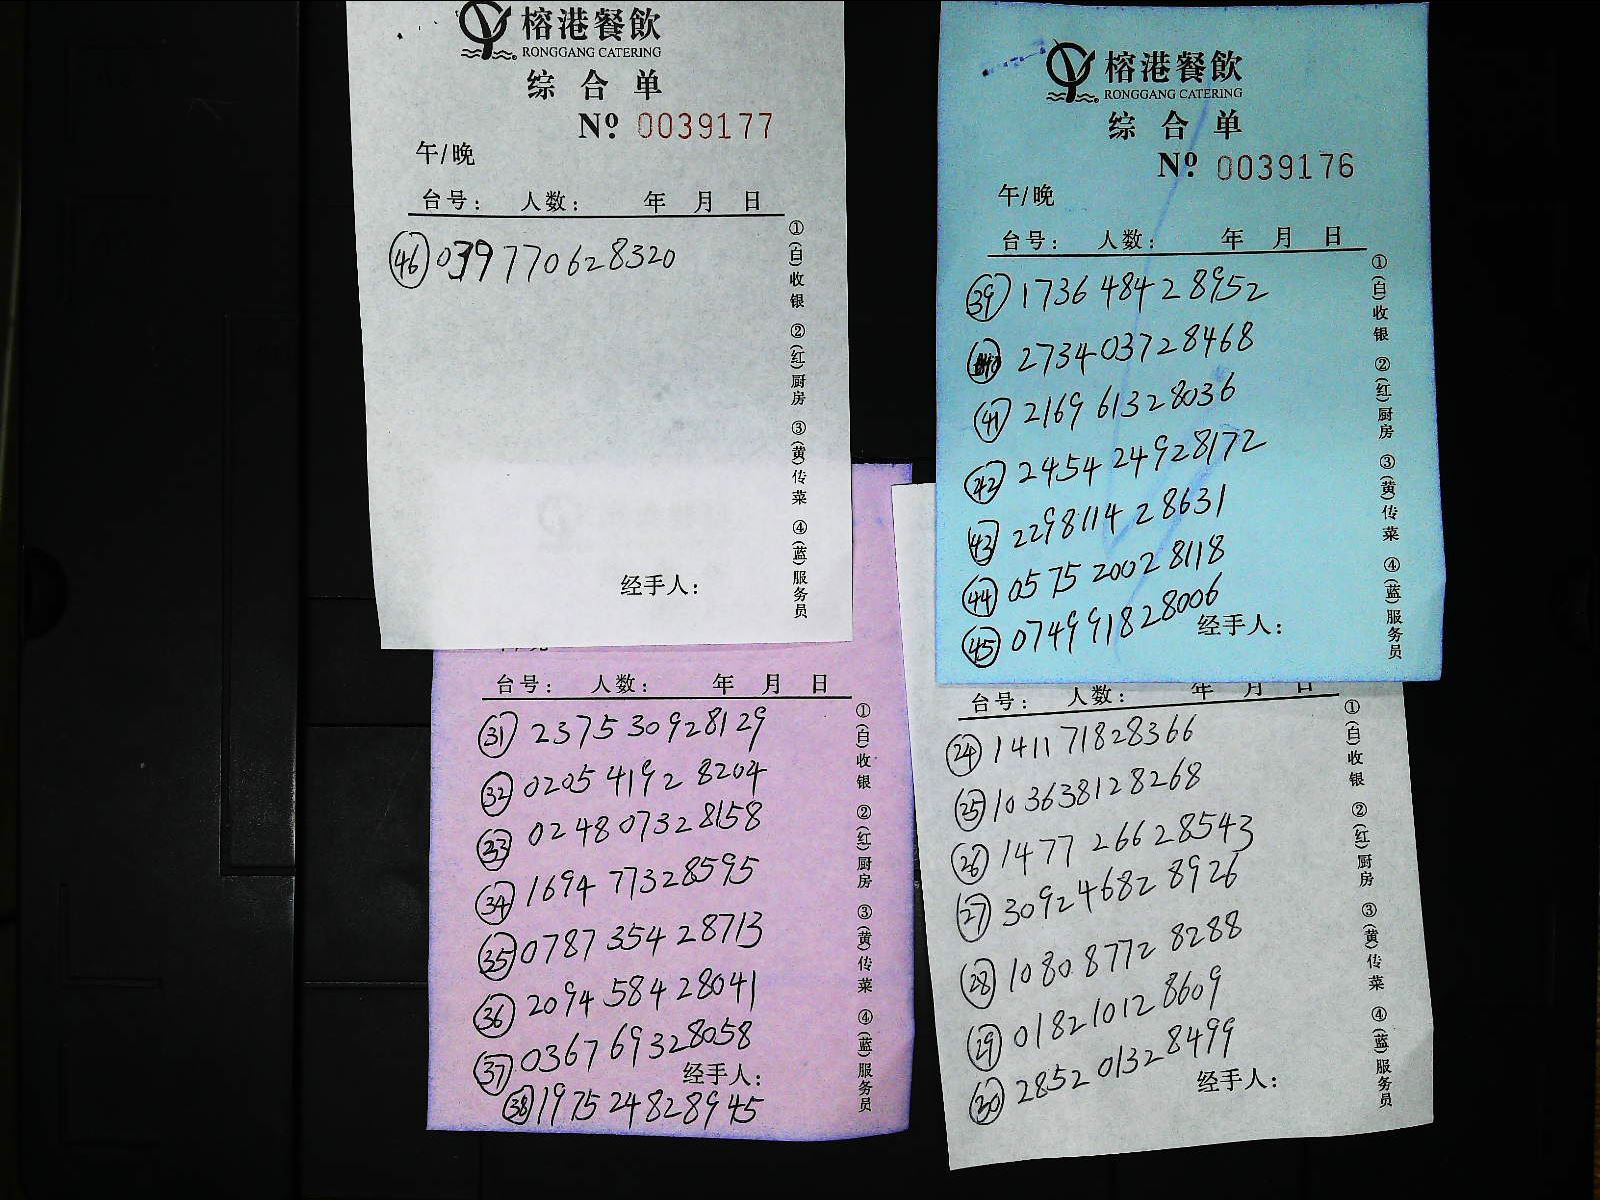 榕港餐飲
RONGGANG CATERING
综合单
Nº 0039177
午/晚
台号： 人数： 年 月 日
㊻ 039770628320
①(白)收银 ②(红)厨房 ③(黄)传菜 ④(蓝)服务员
经手人：
榕港餐飲
RONGGANG CATERING
综合单
Nº 0039176
午/晚
台号： 人数： 年 月 日
㊴ 1736 484 2 8952
㊵ 2734 037 2 8468
㊶ 2169 613 2 8036
㊷ 2454 249 2 8172
㊸ 2298 114 2 8631
㊹ 0575 200 2 8118
㊺ 0749 918 2 8006
经手人：
①(白)收银 ②(红)厨房 ③(黄)传菜 ④(蓝)服务员
台号： 人数： 年 月 日
㉛ 2375 309 2 8129
㉜ 0205 419 2 8204
㉝ 0248 073 2 8158
㉞ 1694 773 2 8595
㉟ 0787 354 2 8713
㊱ 2094 584 2 8041
㊲ 0367 693 2 8058
经手人：
㊳ 1975 248 2 8945
①(白)收银 ②(红)厨房 ③(黄)传菜 ④(蓝)服务员
台号： 人数： 年 月 日
㉔ 1411 718 2 8366
㉕ 1036 381 2 8268
㉖ 1477 266 2 8543
㉗ 3092 468 2 8926
㉘ 1080 877 2 8288
㉙ 0182 101 2 8609
㉚ 2852 013 2 8499
经手人：
①(白)收银 ②(红)厨房 ③(黄)传菜 ④(蓝)服务员